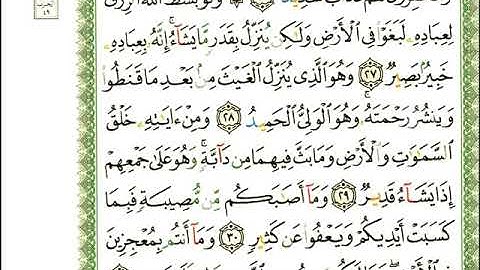 وَلَوْ بَسَطَ ٱللَّهُ ٱلرِّزْقَ
لِعِبَادِهِۦ لَبَغَوْا۟ فِى ٱلْأَرْضِ وَلَٰكِن يُنَزِّلُ بِقَدَرٍ مَّا يَشَآءُ ۚ إِنَّهُۥ بِعِبَادِهِۦ
خَبِيرٌۢ بَصِيرٌ ٢٧ وَهُوَ ٱلَّذِى يُنَزِّلُ ٱلْغَيْثَ مِنۢ بَعْدِ مَا قَنَطُوا۟
وَيَنشُرُ رَحْمَتَهُۥ ۚ وَهُوَ ٱلْوَلِىُّ ٱلْحَمِيدُ ٢٨ وَمِنْ ءَايَٰتِهِۦ خَلْقُ
ٱلسَّمَٰوَٰتِ وَٱلْأَرْضِ وَمَا بَثَّ فِيهِمَا مِن دَآبَّةٍ ۚ وَهُوَ عَلَىٰ جَمْعِهِمْ
إِذَا يَشَآءُ قَدِيرٌ ٢٩ وَمَآ أَصَٰبَكُم مِّن مُّصِيبَةٍ فَبِمَا
كَسَبَتْ أَيْدِيكُمْ وَيَعْفُوا۟ عَن كَثِيرٍ ٣٠ وَمَآ أَنتُم بِمُعْجِزِينَ